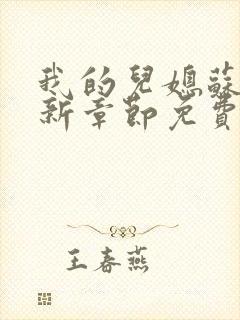 我的兒媳蘇
新章節免費
王春燕